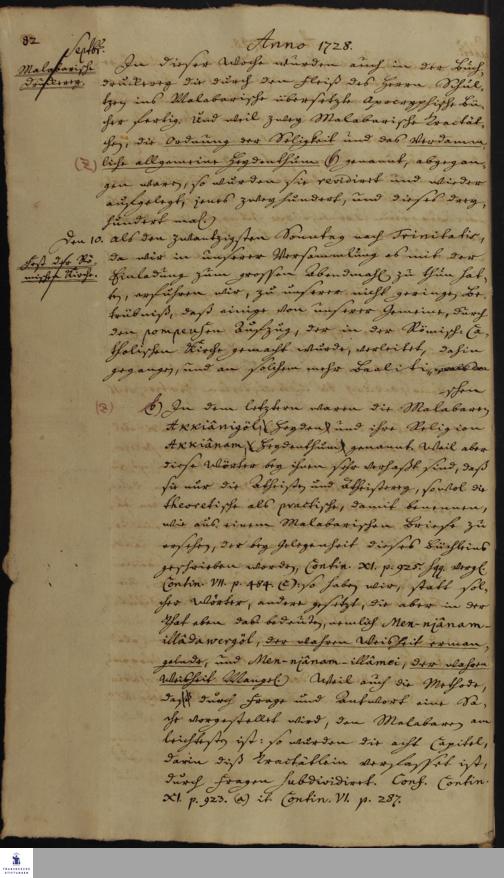 82
Anno 1728.
Septbr.
Malabarische
Druckerey.
In dieser Woche wurden auch in der Buch-
druckerey die durch den Fleiß des Herrn Schul-
tzen ins Malabarische übersetzte Apocryphische Bü-
cher fertig. Und weil zwey Malabarische Tractät-
chen, die Ordnung der Seligkeit und das Verdamm-
liche allgemeine Heydenthum (b) genannt, abgegan-
gen waren, so wurden sie revidiret und wieder
aufgelegt, jenes zweyhundert, und dieses drey-
hundert mahl.
Den 10. als den zwantzigsten Sonntag nach Trinitatis,
Fest der Rö-
mischen Kirche.
da wir in unserer Versammlung es mit der
Einladung zum grossen Abendmahl zu thun hat-
ten, erfuhren wir, zu unserer nicht geringen Be-
trübniß, daß einige von unserer Gemeine, durch
den pompeusen Aufzug, der in der Römisch-Ca-
tholischen Kirche gemacht wurde, verleitet, dahin
gegangen, und an solchem mehr Baaliti-
schen
(b) In dem letztern waren die Malabaren
Akkiânigöl (Heyden) und ihre Religion
Akkiânam (Heydenthum) genannt. Weil aber
diese Wörter bey ihnen sehr verhaßt sind, daß
sie nur die Atheisten und Atheisterey, sowol die
theoretische als practische, damit benennen,
wie aus einem Malabarischen Briefe zu
ersehen, der bey Gelegenheit dieses Büchleins
geschrieben worden, Contin. XI. p. 925. sqq. vergl.
Contin. VII. p. 484. (c): so haben wir, statt sol-
cher Wörter, andere gesetzt, die aber in der
That eben das bedeuten, nemlich Men-njânam-
illâdawergöl, der wahren Weisheit erman-
gelnde, und Men-njânam-illâmei, der wahren
Weisheit Mangel. Weil auch die Methode,
da durch Frage und Antwort eine Sa-
che vorgestellet wird, den Malabaren am
leichtesten ist: so wurden die acht Capitel,
darin diß Tractätlein verfasset ist,
durch Fragen subdividiret. Conf. Contin.
XI. p. 923. (a) it. Contin. VI. p. 287.
FRANCKESCHE
STIFTUNGEN